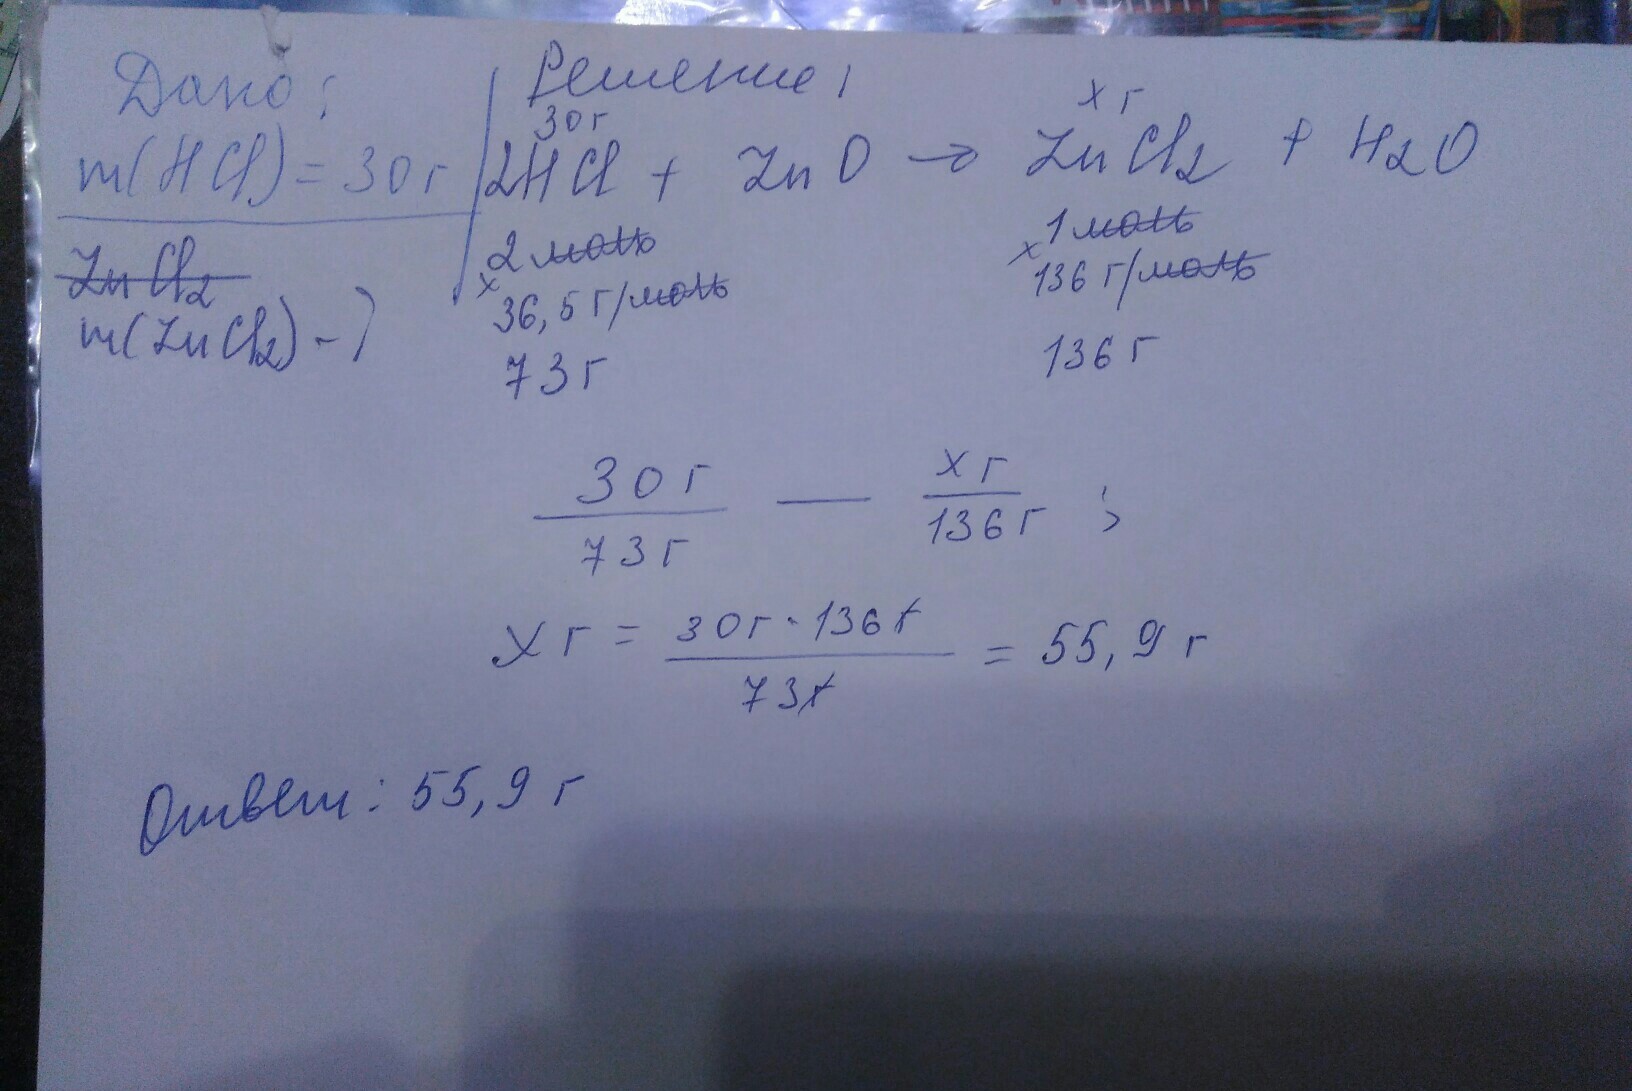 Дано: Решение:
30 г х г
m(HCl) = 30 г 2HCl + ZnO → ZnCl2 + H2O
ZnCl2 2 моль 1 моль
m(ZnCl2) - ? х 36,5 г/моль х 136 г/моль
73 г 136 г
30 г — х г ;
73 г 136 г
х г = 30 г · 136 г = 55,9 г
73 г
Ответ: 55,9 г